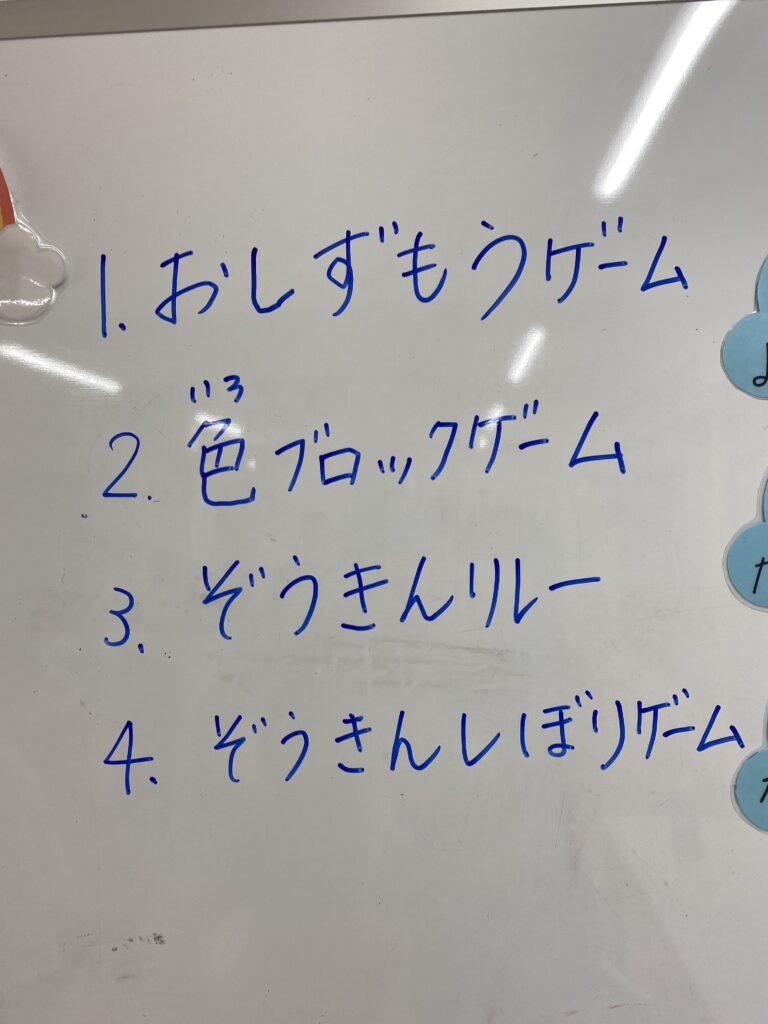 1. おしずもうゲーム
いろ
2. 色ブロックゲーム
3. ぞうきんリレー
4. ぞうきんしぼりゲーム